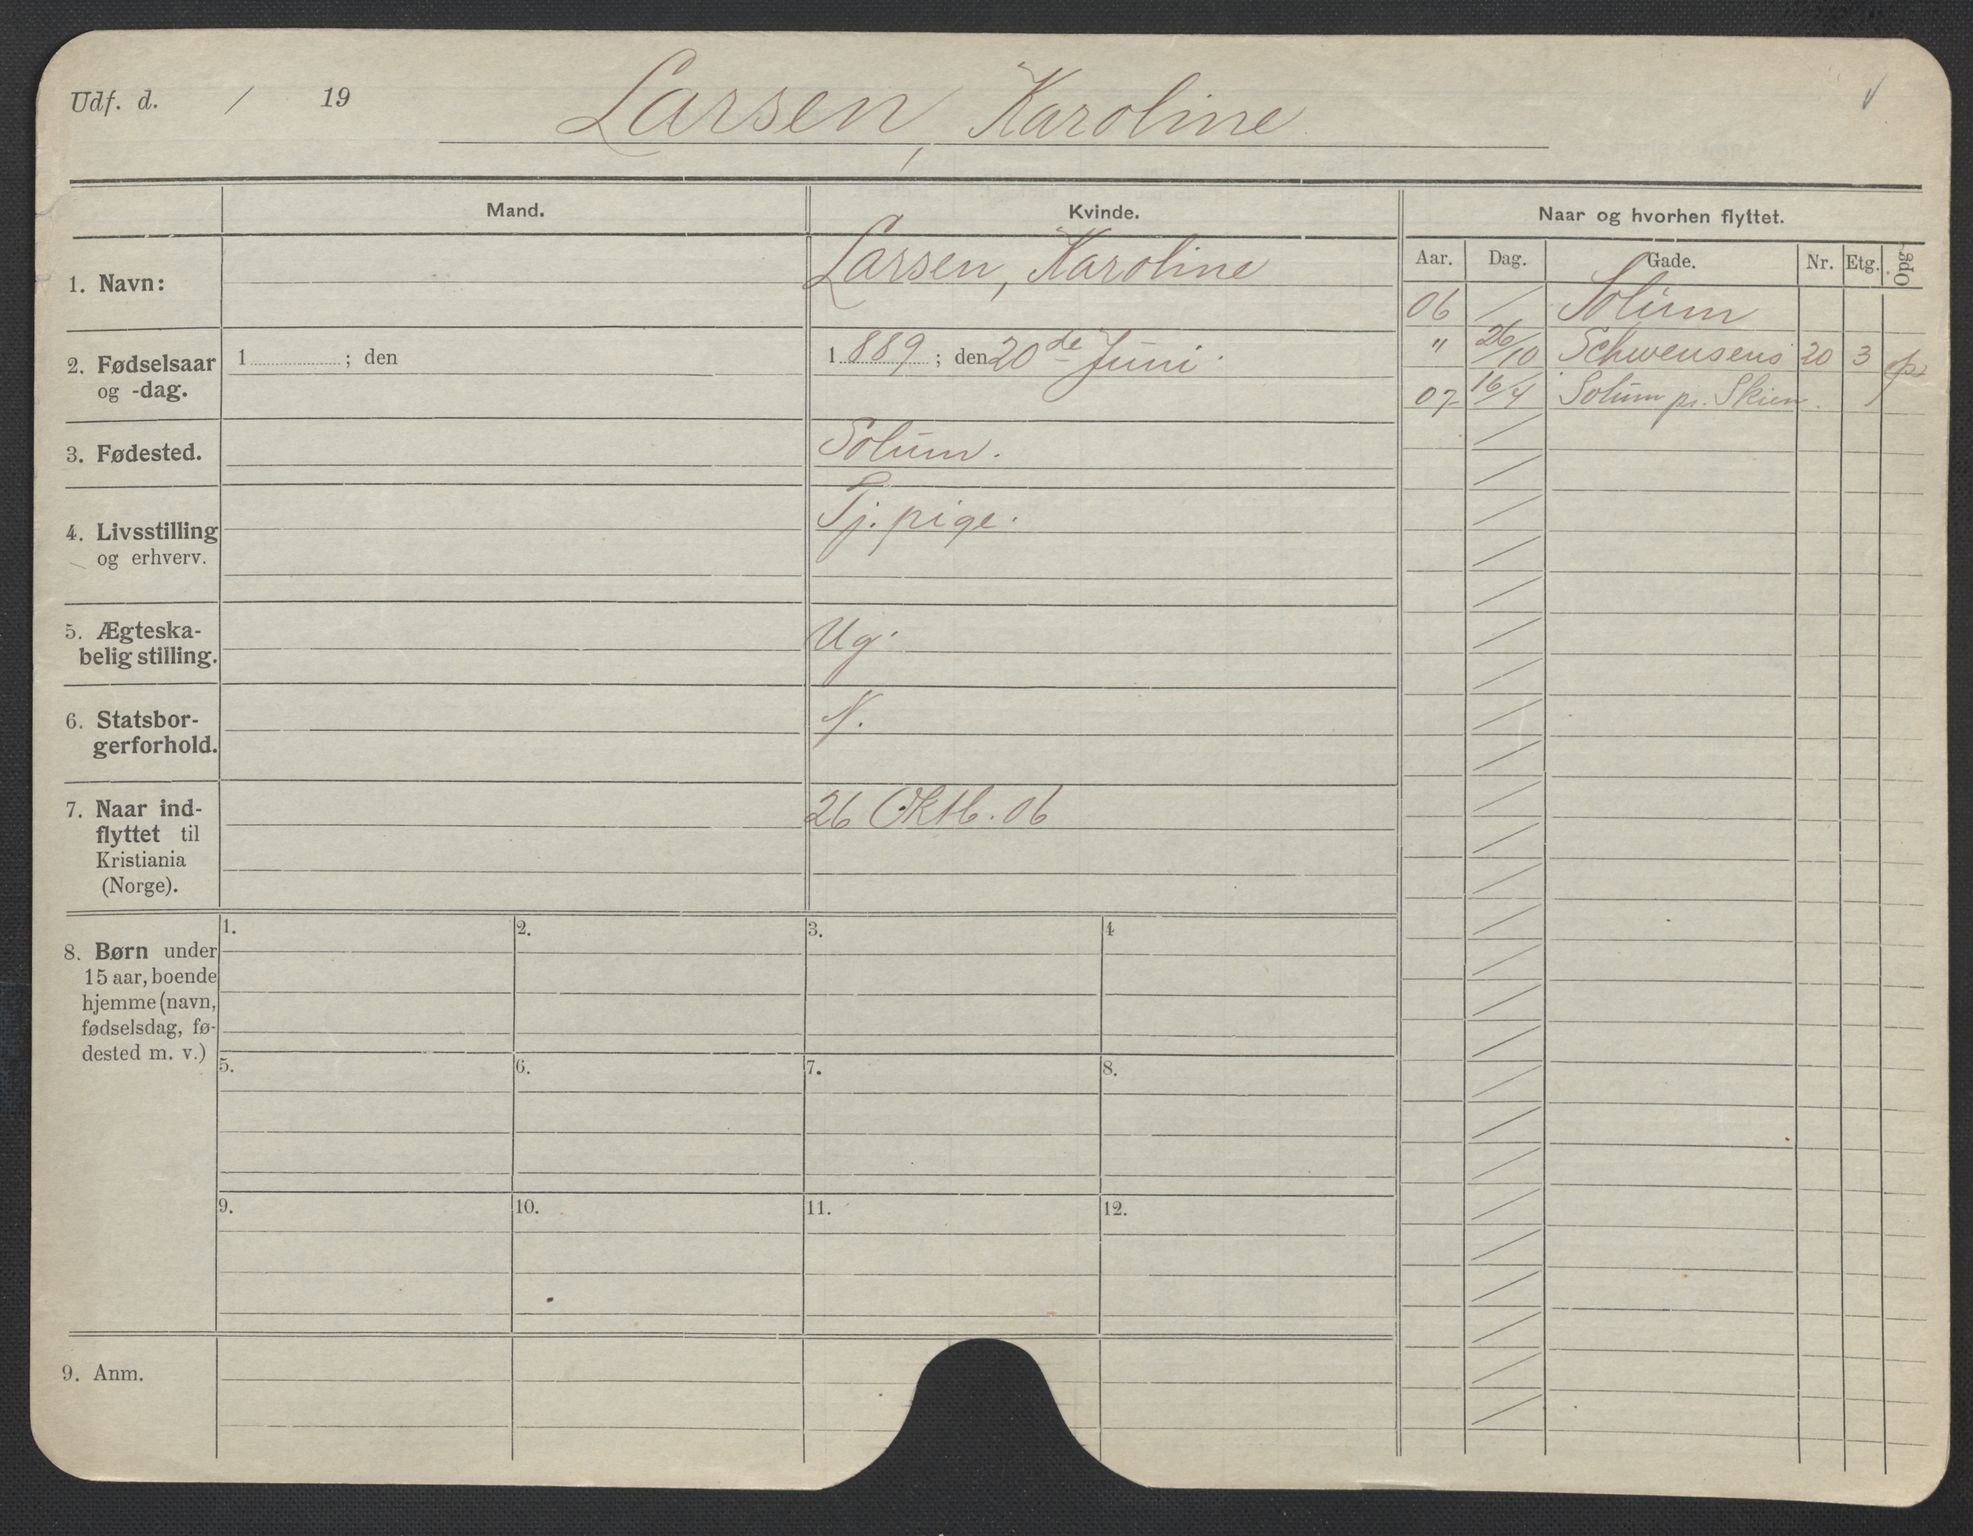 Udf. d. / 19
Larsen, Karoline
Mand.
Kvinde.
Naar og hvorhen flyttet.
Aar. Dag. Gade. Nr. Etg. Opg.
1. Navn:
Larsen, Karoline
06 / Solum
" 26/10 Schwensens 20 3
07 16/4 Solum pr. Skien.
2. Fødselsaar
og -dag.
1 ; den
1889 ; den 20de Juni.
3. Fødested.
Solum.
4. Livsstilling
og erhverv.
Tj. pige.
5. Ægteska-
belig stilling.
Ug.
6. Statsbor-
gerforhold.
N.
7. Naar ind-
flyttet til
Kristiania
(Norge).
26 Oktb. 06
8. Børn under
15 aar, boende
hjemme (navn,
fødselsdag, fø-
dested m. v.)
1. 2. 3. 4
5. 6. 7. 8.
9. 10. 11. 12.
9. Anm.